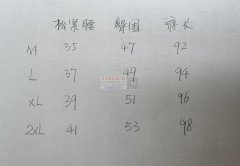 松紧腰 臀围 裤长
M 35 47 92
L 37 49 94
XL 39 51 96
2XL 41 53 98